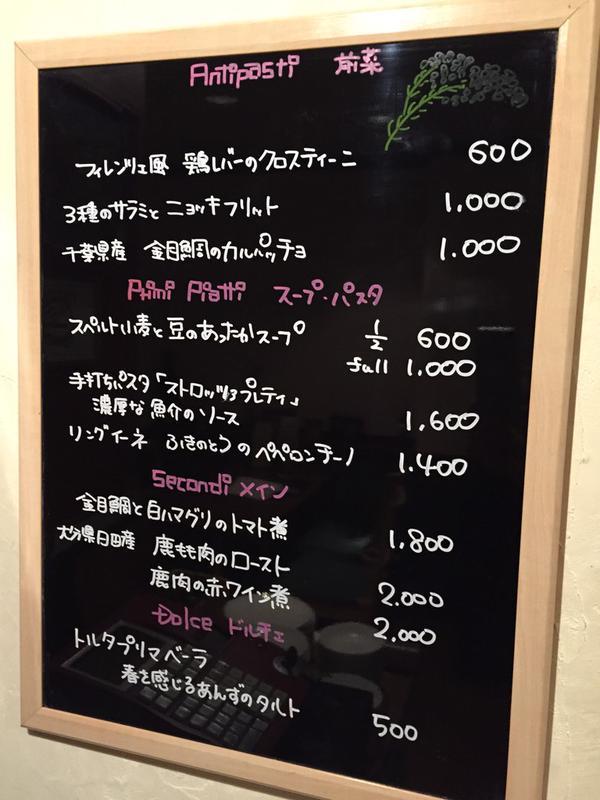 Antipasti 前菜
フィレンツェ風 鶏レバーのクロスティーニ 600
3種のサラミと ニョッキフリット 1.000
千葉県産 金目鯛のカルパッチョ 1.000
Primi Piatti スープ・パスタ
スペルト小麦と豆のあったかスープ 1/2 600
full 1.000
手打ちパスタ「ストロッツァプレティ」
濃厚な魚介のソース 1.600
リングイーネ ふきのとうのペペロンチーノ 1.400
Secondi メイン
金目鯛と白ハマグリのトマト煮 1.800
大分県日田産 鹿もも肉のロースト 2.000
鹿肉の赤ワイン煮 2.000
Dolce ドルチェ
トルタプリマベーラ
春を感じるあんずのタルト 500